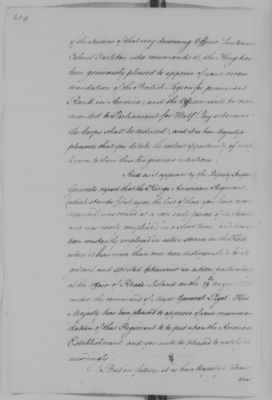 of the Services of that very deserving Officer Lieutenant
Colonel Tarleton who commands it, the King has
been graciously pleased to approve of your recom-
mendation of the British Legion for permanent
Rank in America; and the Officers will be recom-
mended to Parliament for Half Pay whenever
the Corps shall be reduced, and it is his Majesty's
pleasure that you do take the earliest opportunity of mak-
ing known to them this His gracious intention.
And as it appears by the Deputy Inspec-
General's report that the King's American Regiment
(which stands first upon the list of those you have recom-
mended) was raised at a very early period of the Rebellion
and was nearly completed in a short time, and has
been constantly employed in active service in the Field
where it has more than once been distinguished by its
and spirited behaviour in action, particularly
at the affair of Rhode Island on the 29th August
under the command of Major General Pigot. His
Majesty has been pleased to approve of your recommen-
dation of that Regiment to be put upon the American
Establishment, and you will be pleased to notify it
accordingly.
But in future, it is his Majesty's pleasure
that